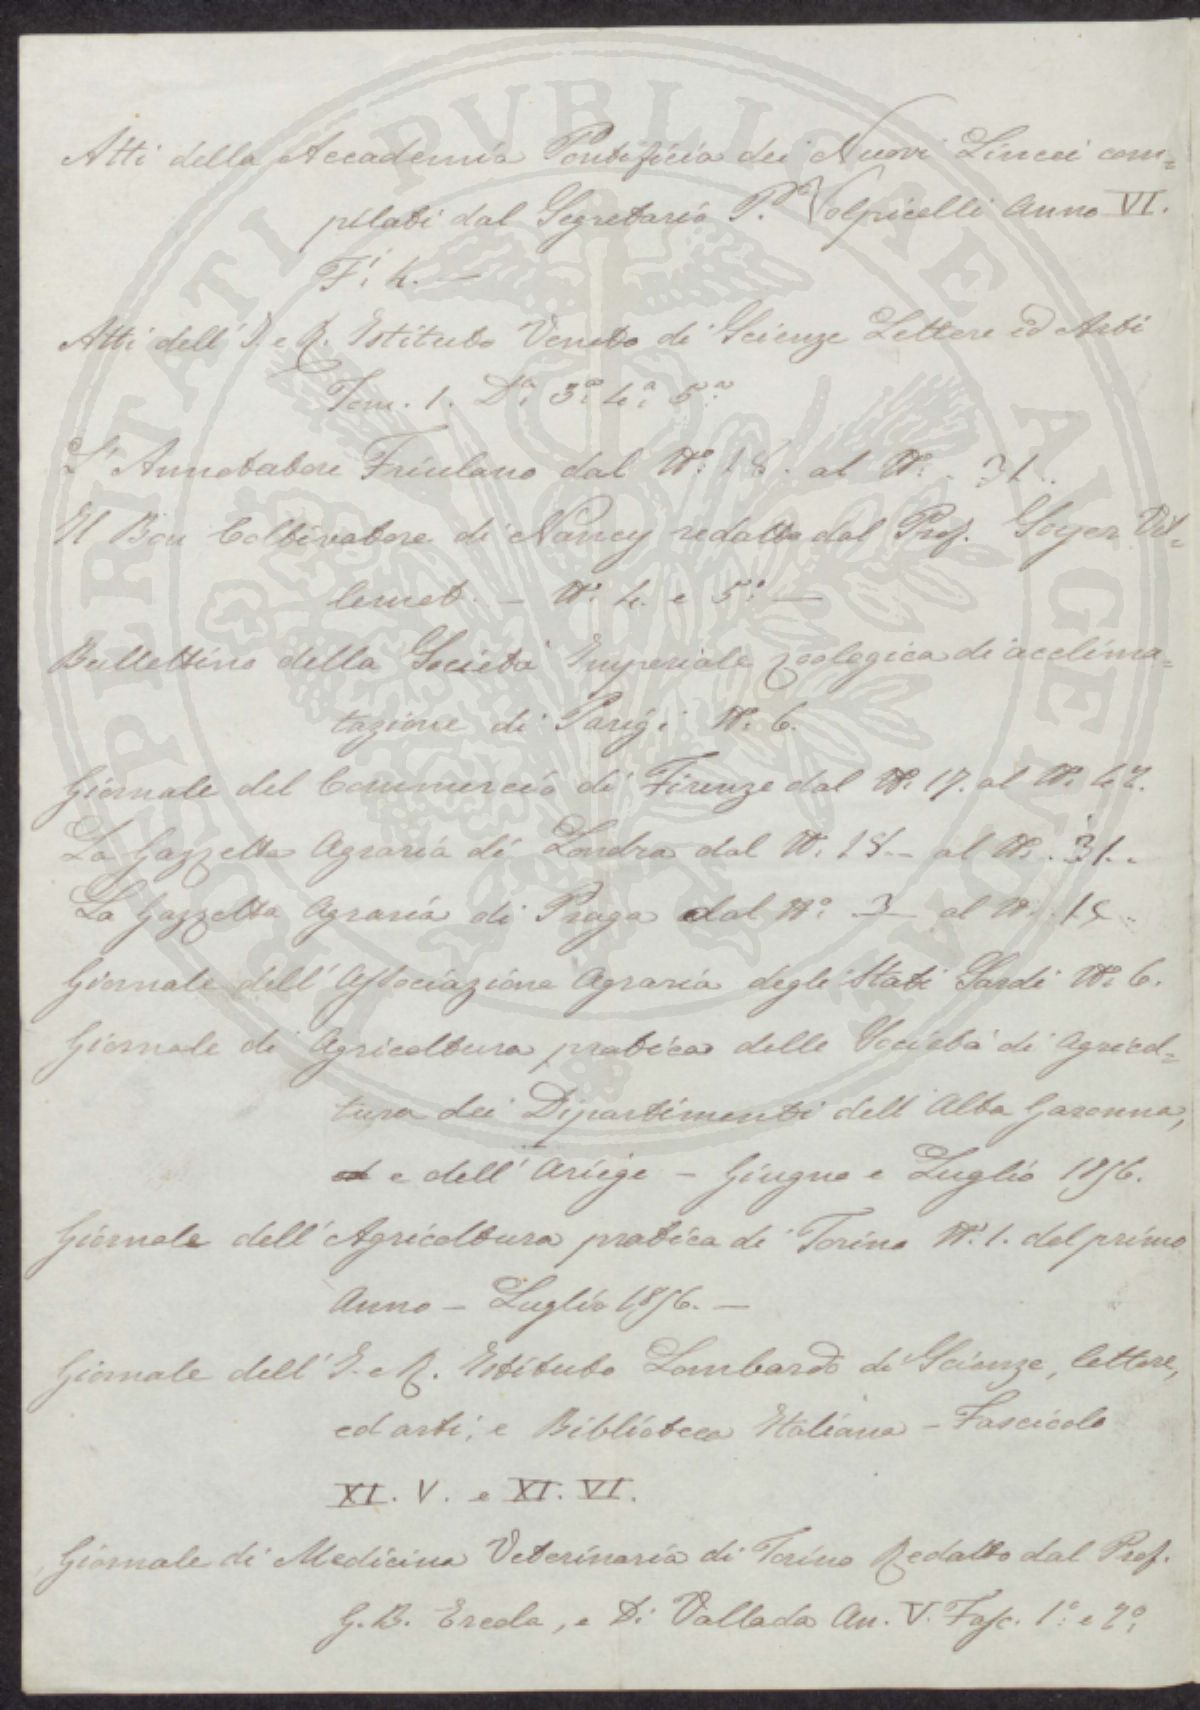 Atti della Accademia Pontificia dei Nuovi Lincei com=
pilati dal Segretario P. Volpicelli Anno VI.
F.i 4. —
Atti dell' I. e R. Istituto Veneto di Scienze Lettere ed Arti
Tom. 1. D.a 3.a 4.a 5.a
L'Annotatore Friulano dal N.o 18. al N.o 31.
Il Bon Coltivatore di Nancy redatto dal Prof. Soyer Vil=
lemet. — N.o 4. e 5.o —
Bullettino della Società Imperiale zoologica di acclima=
tazione di Parigi N.o 6.
Giornale del Commercio di Firenze dal N.o 17. al N.o 42.
La Gazzetta Agraria di Londra dal N.o 18. — al N.o 31.
La Gazzetta Agraria di Praga dal N.o 3 — al N.o
Giornale dell' Associazione Agraria degli Stati Sardi N.o 6.
Giornale di Agricoltura pratica delle Società di Agricol=
tura dei Dipartimenti dell' Alta Garonna,
e dell' Ariége — Giugno e Luglio 1856.
Giornale dell' Agricoltura pratica di Torino N.o 1. del primo
Anno — Luglio 1856. —
Giornale dell' I. e R. Istituto Lombardo di Scienze, lettere,
ed arti; e Biblioteca Italiana — Fascicolo
XI. V. e XI. VI.
Giornale di Medicina Veterinaria di Torino Redatto dal Prof.
G. B. Ercola, e Di Vallada An. V. Fasc. 1.o e 2.o
PROSPERITATI PVBLICAE AVGENDAE